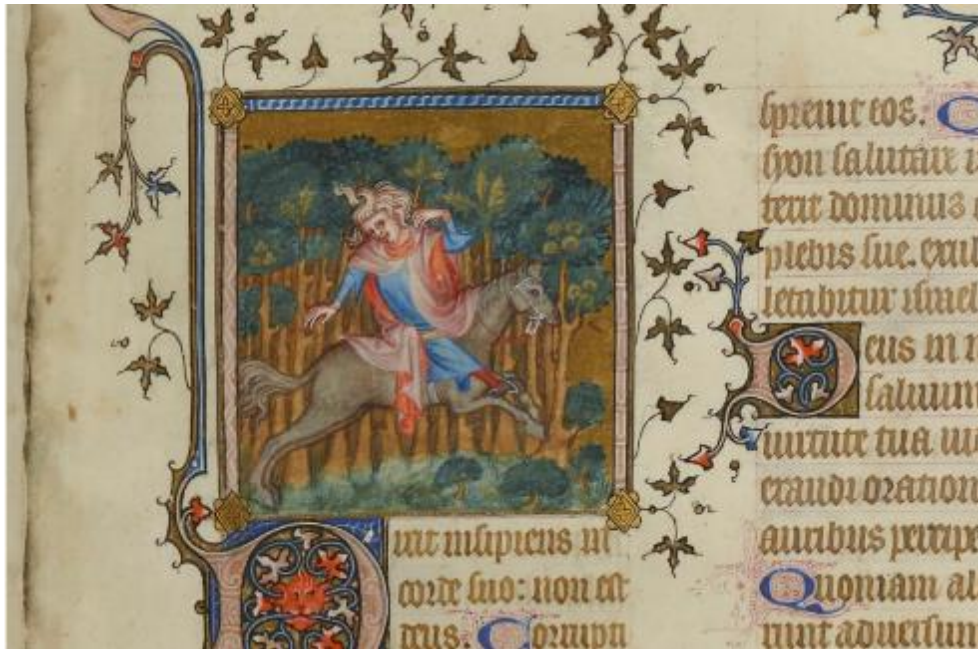 Dixit insipiens in
corde suo: non est
deus. Corrupti
spreuit eos. Q
syon salutare
terit dominus
plebis sue. exul
letabitur israel
Deus in n
saluum
uirtute tua iu
exaudi oration
auribus percip
Quoniam al
runt aduersum